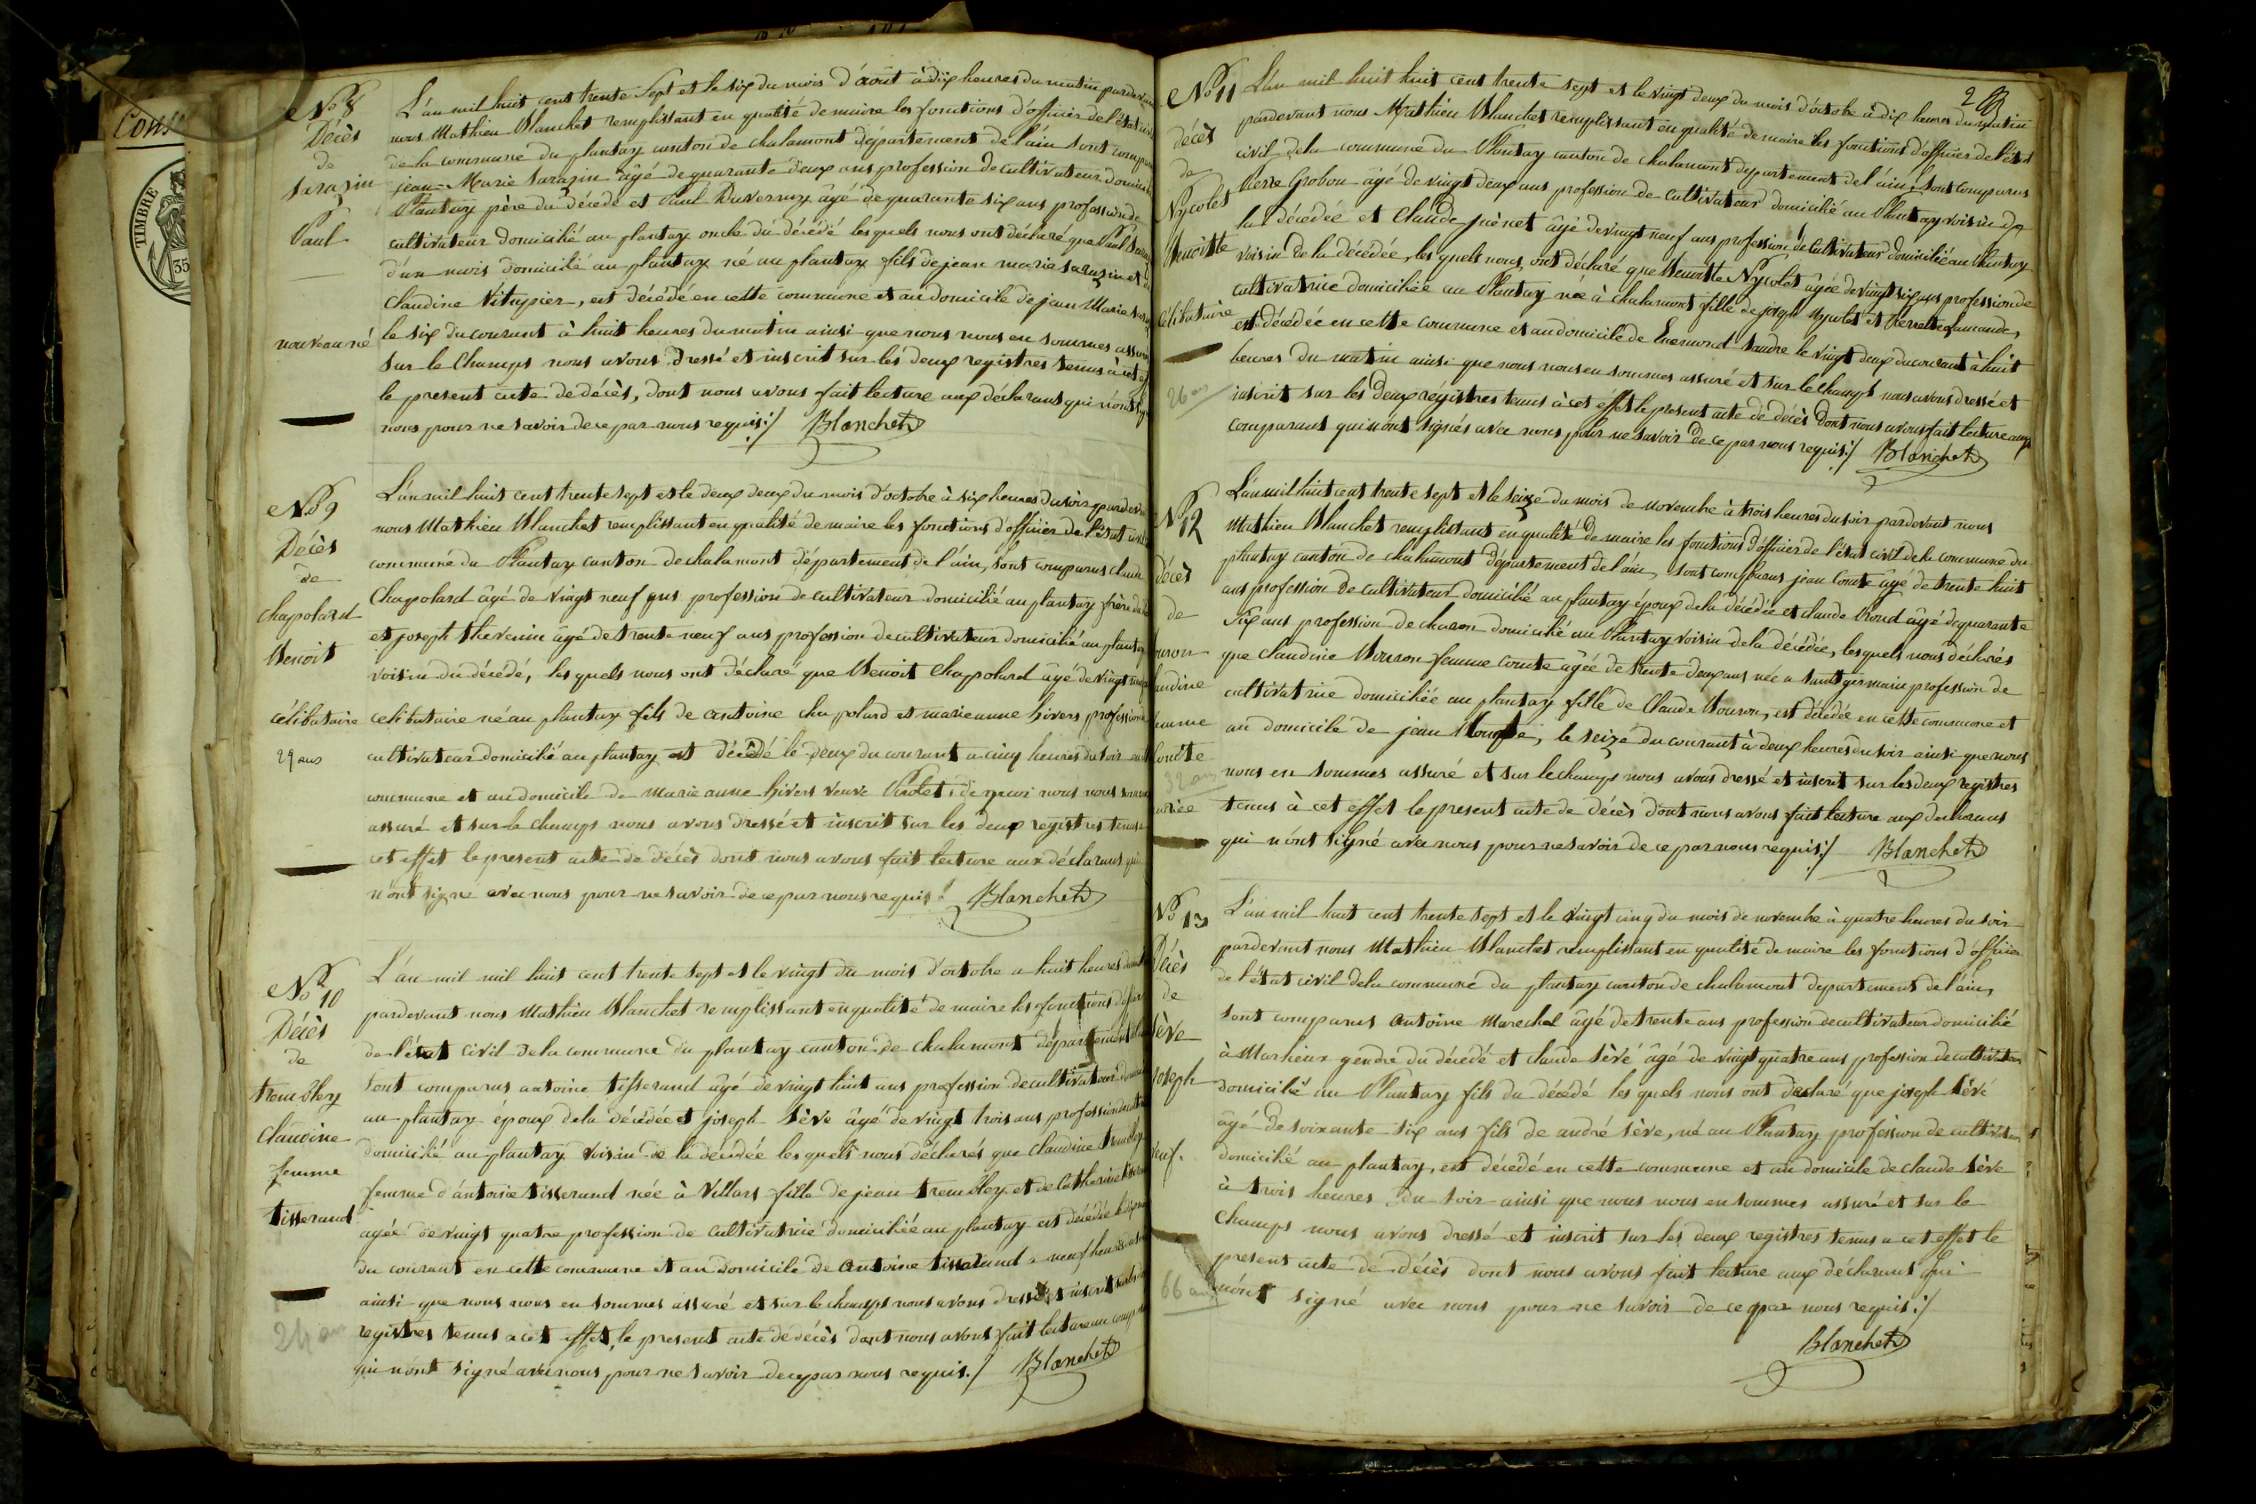 Cons
TIMBRE
35
No 8
Décès
de
Sarazin
Paul
nouveau né
L'an mil huit cent trente Sept et le six du mois d'août à dix heures du matin pardevant
nous Mathieu Blanchet remplissant en qualité de maire les fonctions d'officier de l'état
de la commune du plantay canton de chalamont département de l'ain sont
jean-Marie Sarazin âgé de quarante deux ans profession de cultivateur
Plantay père du décédé et Paul Duvernay âgé de quarante six ans profession de
cultivateur domicilié au plantay oncle du décédé lesquels nous ont déclaré que Paul
d'un mois domicilié au plantay né au plantay fils de jean marie sarazin et
Claudine Vituprier, est décédé en cette commune et au domicile de jean Marie
le six du courant à huit heures du matin ainsi que nous nous en sommes
sur le Champs nous avons dressé et inscrit sur les deux registres tenus à cet
le present acte de décès, dont nous avons fait lecture aux déclarants qui n'ont
nous pour ne savoir de ce par nous requis :/ Blanchet
No 9
Décès
de
Chapolard
Benoit
célibataire
29 ans
L'an mil huit cent trente sept et le deux deux du mois d'octobre à six heures du soir pardevant
nous Mathieu Blanchet remplissant en qualité de maire les fonctions d'officier de l'état
commune du Plantay canton de chalamont département de l'ain, sont comparus claude
Chapolard âgé de vingt neuf ans profession de cultivateur domicilié au plantay frère
et joseph thevenin âgé de trente neuf ans profession de cultivateur domicilié au plantay
voisin du décédé, lesquels nous ont déclaré que Benoit Chapolard âgé de vingt
celibataire né au plantay fils de antoine chapolard et marieanne hivers profession
cultivateur domicilié au plantay est décédé le deux du courant a cinq heures du soir
commune et au domicile de marie anne hivers veuve Violet, de quoi nous nous
assuré et sur le champs nous avons dressé et inscrit sur les deux registres tenus
cet effet le present acte de décès dont nous avons fait lecture aux déclarans
n'ont signé avec nous pour ne savoir de ce par nous requis / Blanchet
No 10
Décès
de
trembley
Claudine
femme
tisserand
24 ans
L'an mil mil huit cent trente sept et le vingt du mois d'octobre a huit heures
pardevant nous Mathieu Blanchet remplissant en qualité de maire les fonctions
de l'état civil de la commune du plantay canton de chalamont département
sont comparus antoine tisserand âgé de vingt huit ans profession de cultivateur
au plantay époux de la décédée et joseph Sève âgé de vingt trois ans profession
domicilié au plantay voisin de la décédée lesquels nous déclarés que Claudine
femme d'antoine tisserand née à Villars fille de jean trembley et de Catherine
agée de vingt quatre profession de cultivatrice domiciliée au plantay est décédée le
du courant en cette commune et au domicile de Antoine tisserand a neuf heures
ainsi que nous nous en sommes assuré et sur le champs nous avons dressé et inscrit
registres tenus a cet effet, le present acte de décès dont nous avons fait lecture aux
qui n'ont signé avec nous pour ne savoir de ce par nous requis./ Blanchet
2
No 11
décès
de
Nycolet
Benoitte
célibataire
26 ans
L'an mil huit huit cent trente sept et le vingt deux du mois d'octobre à dix heures du matin
pardevant nous Mathieu Blanchet remplissant en qualité de maire les fonctions d'officier de l'état
civil de la commune du Plantay canton de chalamont departement de l'ain; sont comparus
Pierre Grobon âgé de vingt deux ans profession de cultivateur domicilié au Plantay voisin de
la décédée et Claude âgé de vingt neuf ans profession de Cultivateur domicilié au Plantay
voisin de la décédée, lesquels nous ont déclaré que Benoitte Nycolet âgée de vingt six ans profession de
cultivatrice domiciliée au Plantay née à chalamont fille de joseph Nycolet et Pierrette
est décédée en cette commune et au domicile de Tandre le vingt deux du courant à huit
heures du matin ainsi que nous nous en sommes assuré et sur le champs nous avons dressé et
inscrit sur les deux régistres tenus à cet éffet le present acte de décès dont nous avons fait lecture aux
comparans qui n'ont signés avec nous pour ne savoir de ce par nous requis :/ Blanchet
No 12
décès
de
femme
Comte
32 ans
L'an mil huit cent trente sept et le seize du mois de novembre à trois heures du soir pardevant nous
Mathieu Blanchet remplissant en qualité de maire les fonctions d'officier de l'état civil de la commune du
plantay canton de chalamont département de l'ain, sont comparus jean Comte âgé de trente huit
ans profession de cultivateur domicilié au plantay époux de la décédée et claude Rond âgé de quarante
six ans profession de charon domicilié au Plantay voisin de la décédée, lesquels nous déclarés
que Claudine Bouron femme comte âgée de trente deux ans née a saint germain profession de
cultivatrice domiciliée au plantay fille de Claude Bouron, est décédée en cette commune et
au domicile de jean Comte, le seize du courant à deux heures du soir ainsi que nous
nous en sommes assuré et sur le champs nous avons dressé et inscrit sur les deux registres
tenus à cet effet le present acte de décès dont nous avons fait lecture aux declarans
qui n'ont signé avec nous pour ne savoir de ce par nous requis :/ Blanchet
No 13
Décès
de
Sève
joseph
veuf.
66 ans
L'an mil huit cent trente sept et le vingt cinq du mois de novembre à quatre heures du soir
pardevant nous Mathieu Blanchet remplissant en qualité de maire les fonctions d'officier
de l'état civil de la commune du plantay canton de chalamont departement de l'ain,
sont comparus Antoine Marechal âgé de trente ans profession de cultivateur domicilié
à Marlieux gendre du décédé et claude Sève âgé de vingt quatre ans profession de cultivateur
domicilié au Plantay fils du décédé lesquels nous ont declaré que joseph Sève
âgé de soixante six ans fils de andré Sève, né au Plantay profession de cultivateur
domicilié au plantay, est décédé en cette commune et au domicile de claude Sève
à trois heures du soir ainsi que nous nous en sommes assuré et sur le
Champs nous avons dressé et inscrit sur les deux registres tenus a cet effet le
present acte de décès dont nous avons fait lecture aux déclarant qui
n'ont signé avec nous pour ne savoir de ce par nous requis :/
Blanchet